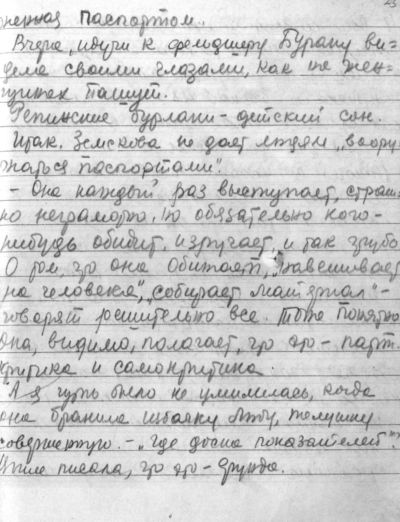 женная паспортом.
Вчера, идучи к фельдшеру Бурану ви=
дела своими глазами, как на жен=
щинах пашут.
Репинские бурлаки – детский сон.
Итак. Земскова не дает людям „воору
жаться паспортами".
– Она каждый раз выступает, страш
но неграмотно. но обязательно кого-
нибудь обидит, изругает, и так грубо
О том, что она обитает, „навешивает
на человека", „собирает материал" –
говорят решительно все. Тоня понятно
она, видимо, полагает, что это – парт.
критика и самокритика.
А я чуть было не умилилась, когда
она бранила избачку Люту, телушку
совершенную. – „Где доска показателей"?
писала, что это – ерунда.